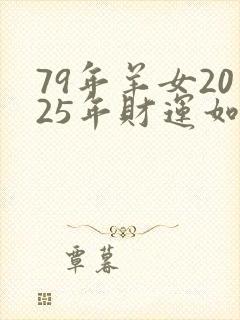 79年羊女20
25年財運如
覃暮